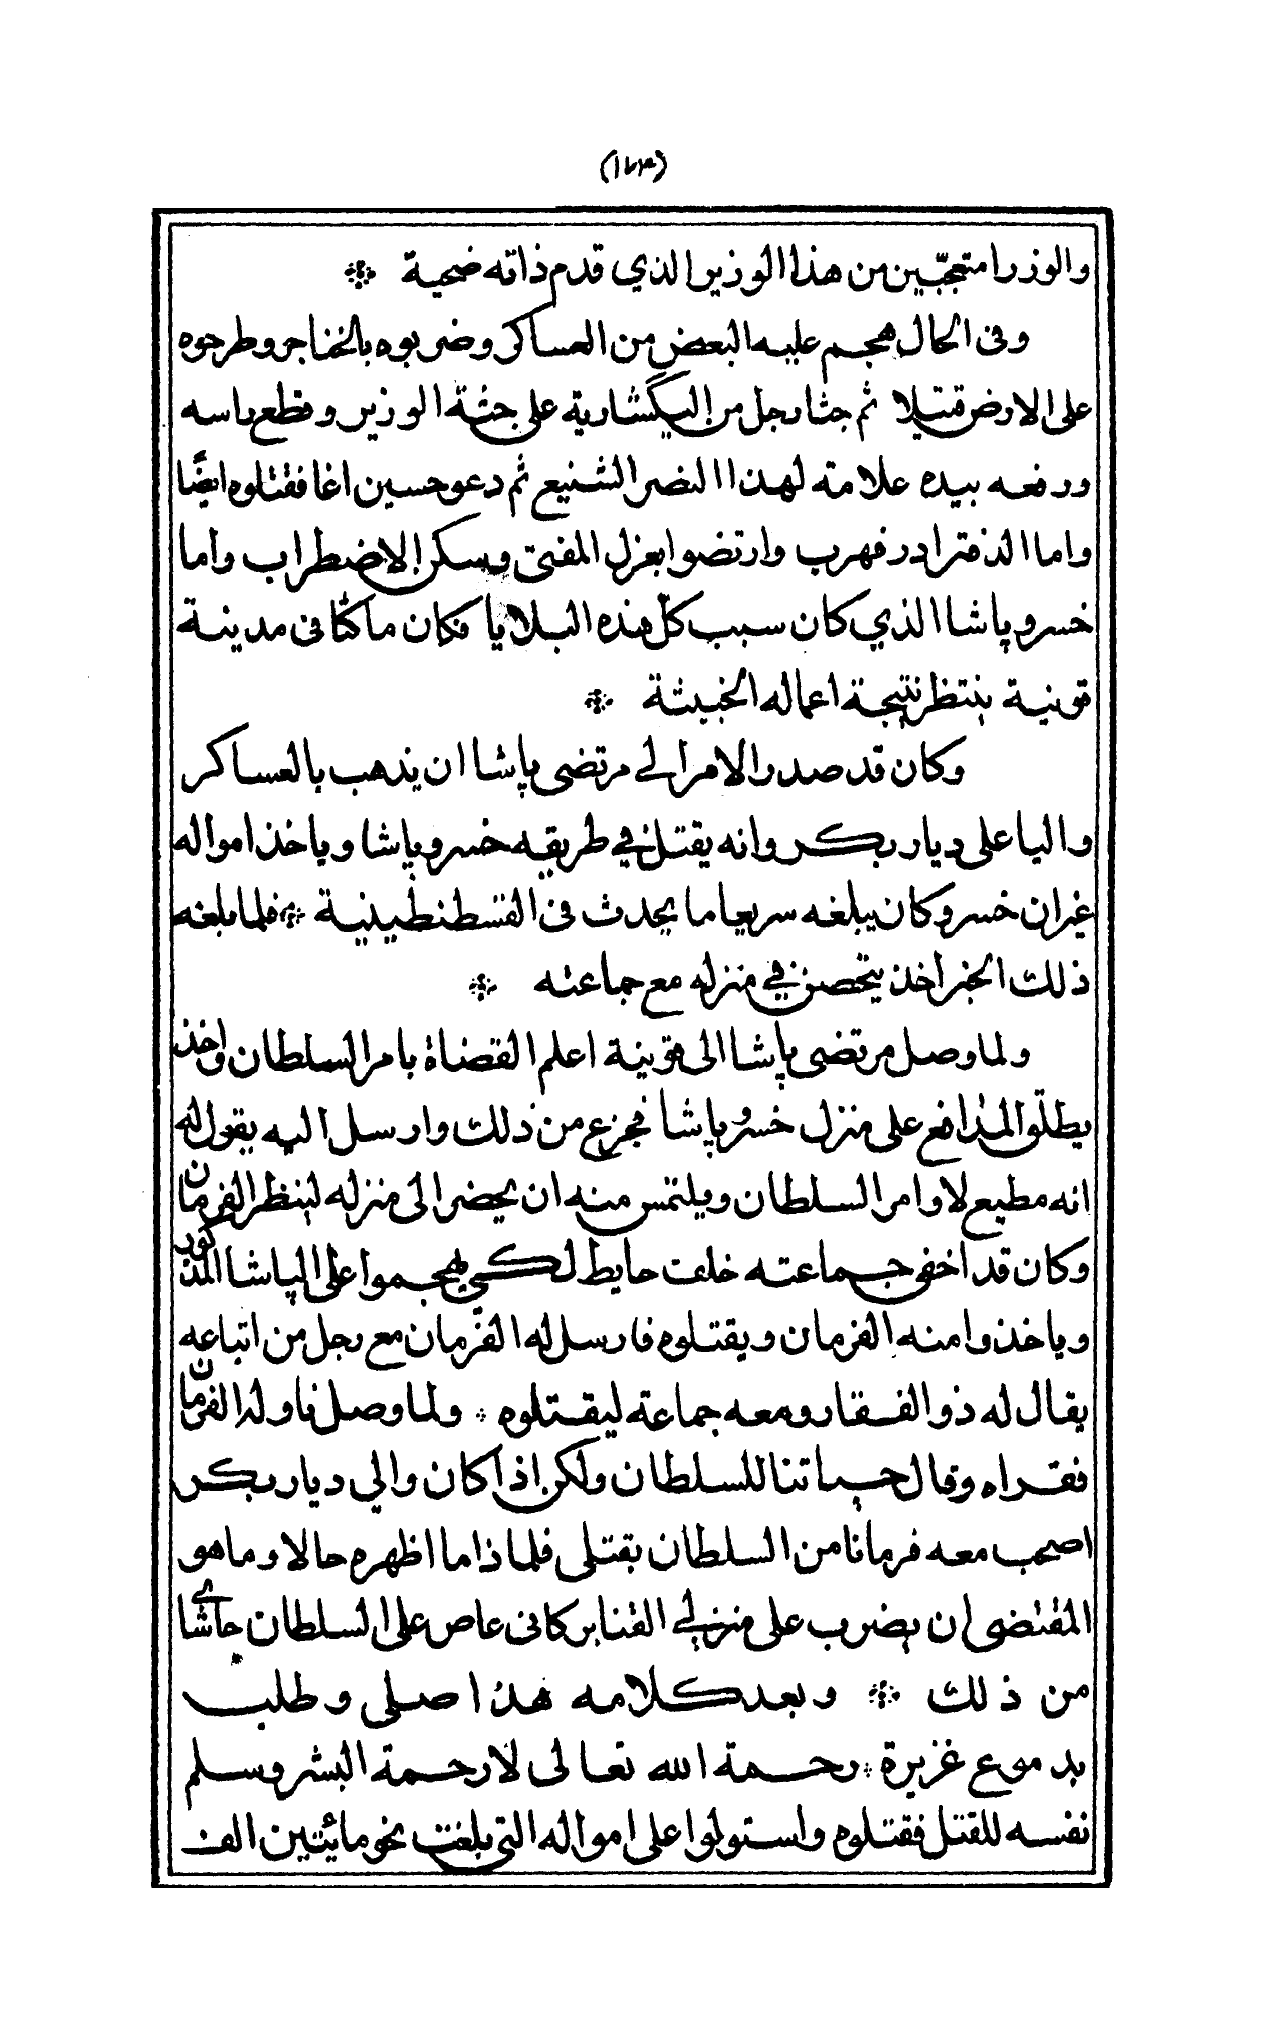 (١٧٣)
والوزرا متعجّبين من هذا الوزير الذي قدم ذاته ضحية *
وفى الحال هجم عليه البعض من العساكر وضربوه بالخناجر وطرحوه
على الارض قتيلا ثم جثا رجل من اليكشارية على جثة الوزير وقطع راسه
ورفعه بيده علامته لهذا النصر الشنيع ثم دعو حسين اغا فقتلوه ايضًا
واما الدفتردار فهرب وارتضوا بعزل المفتى وسكن الاضطراب واما
خسرو پاشا الذي كان سبب كلّ هذه البلايا فكان ماكثا فى مدينة
قونية ينتظر نتيجة اعماله الخبيثة *
وكان قد صدر الامر الى مرتضى پاشا ان يذهب بالعساكر
واليا على ديار بكر وانه يقتل في طريقه خسرو پاشا وياخذ امواله
غير ان خسرو كان يبلغه سريعا ما يحدث فى القسطنطينية * فلما بلغه
ذلك الخبر اخذ يتحصن في منزله مع جماعته *
ولما وصل مرتضى پاشا الى قونية اعلم القضاة بامر السلطان واخذ
يطلّق المدافع على منزل خسرو پاشا فجزع من ذلك وارسل اليه يقول له
انه مطيع لاوامر السلطان ويلتمس منه ان يحضر الى منزله لينظر الفرمان
وكان قد اخفى جماعته خلف حايط لكي يهجموا على الپاشا المذكور
وياخذوا منه الفرمان ويقتلوه فارسل له الفرمان مع رجل من اتباعه
يقال له ذو الفقار ومعه جماعة ليقتلوه * ولما وصل ناوله الفرمان
فقراه وقال حياتنا للسلطان ولكن اذا كان والي ديار بكر
اصحب معه فرمانا من السلطان بقتلى فلماذا ما اظهره حالا وما هو
المقتضى ان يضرب على منزلي القنابر كانى عاص على السلطان حاشاى
من ذلك * وبعد كلامه هذا صلى وطلب
بدموع غزيرة * رحمة الله تعالى لا رحمة البشر وسلم
نفسه للقتل فقتلوه واستولوا على امواله التى بلغت نحو مائتين الف